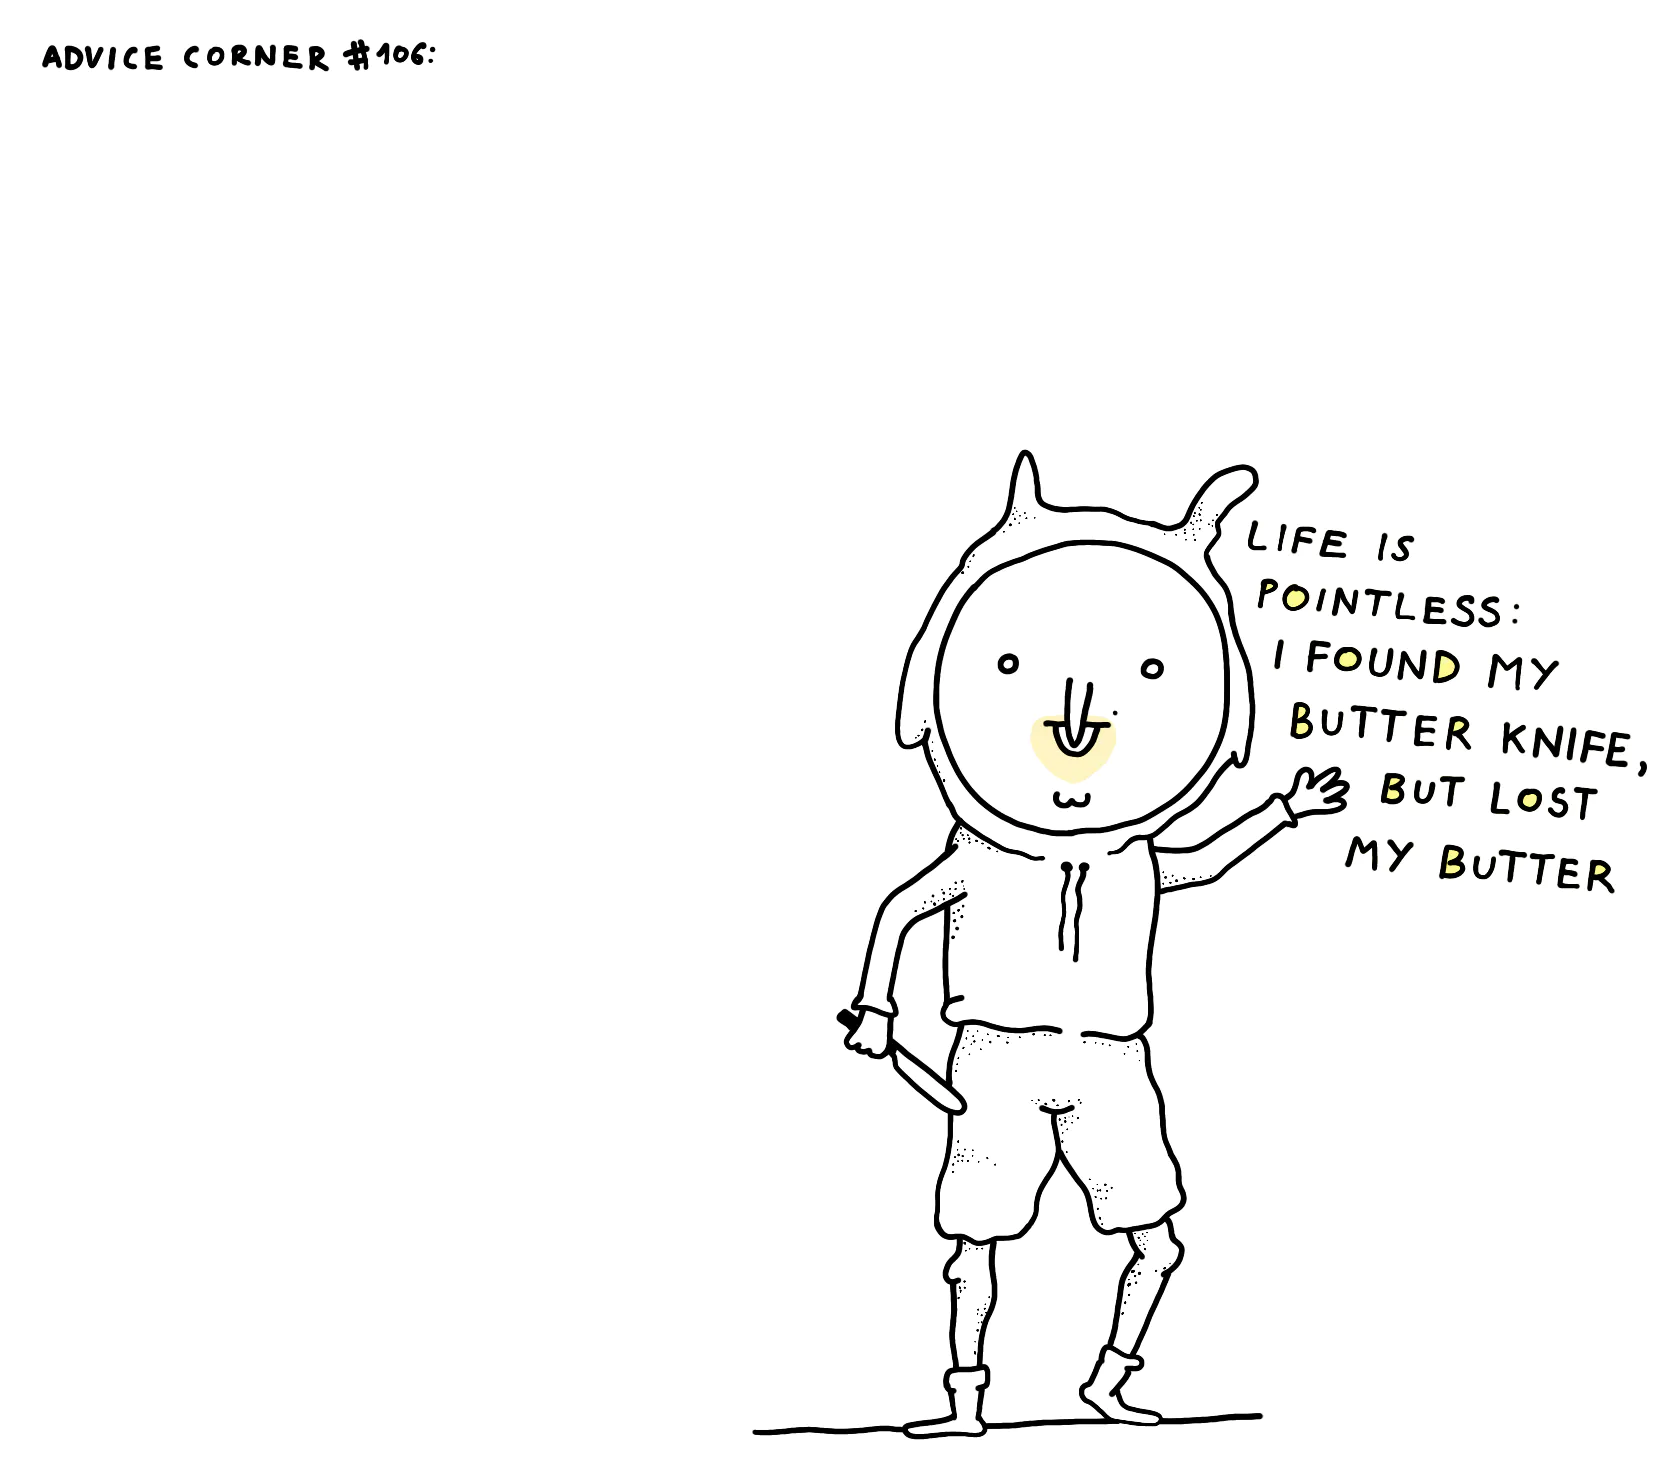 ADVICE CORNER #106:
LIFE IS
POINTLESS:
I FOUND MY
BUTTER KNIFE,
BUT LOST
MY BUTTER